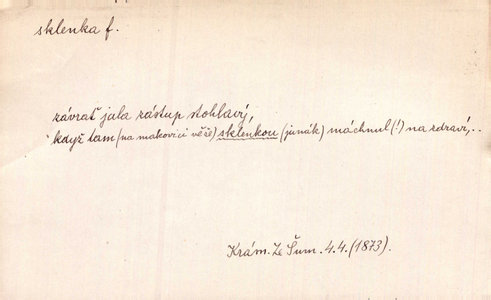 sklenka f.
závrať jala zástup stohlavý,
když tam (na makovici věže) sklenkou (junák) máchnul (!) na zdraví,..
Krám. Ze Šum. 4.4. (1873).